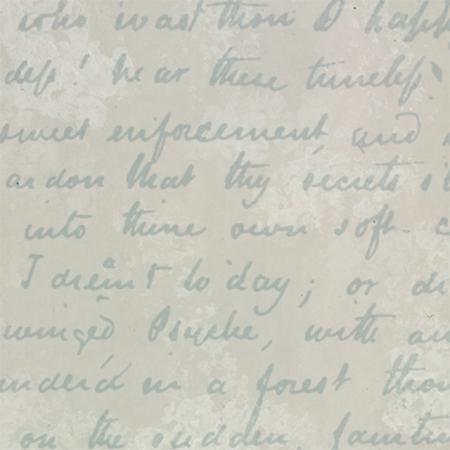 who wast thou O happ
dess! hear these tuneless
sweet enforcement and
ardon that thy secrets s
into thine own soft- c
I dreamt to day; or di
winged Psyche, with aw
ander'd in a forest thou
on the sudden, fainting